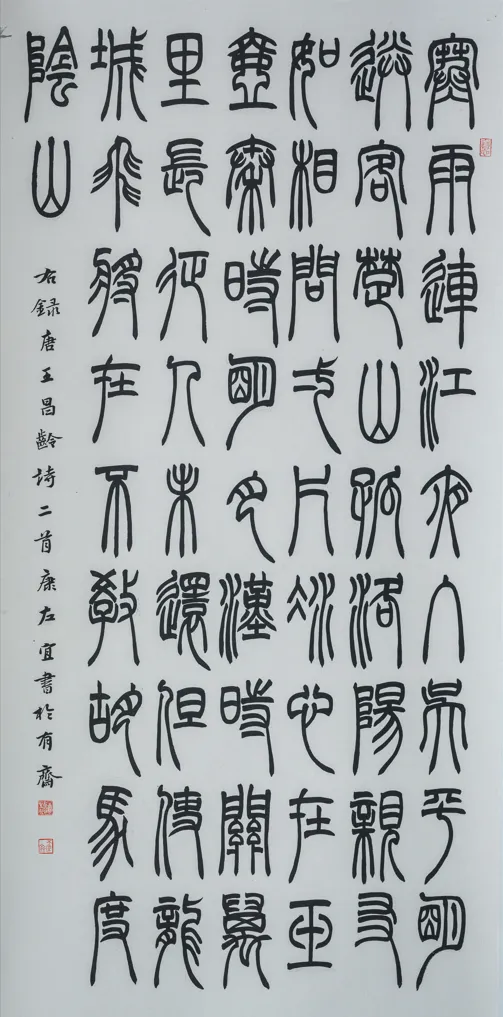 寒雨連江夜入吳平明
送客楚山孤洛陽親友
如相問弌片冰心在玉
壺秦時明月漢時關萬
里長征人未還但使龍
城飛將在不教胡馬度
陰山
右錄唐王昌齡詩二首康左宜書於有齋